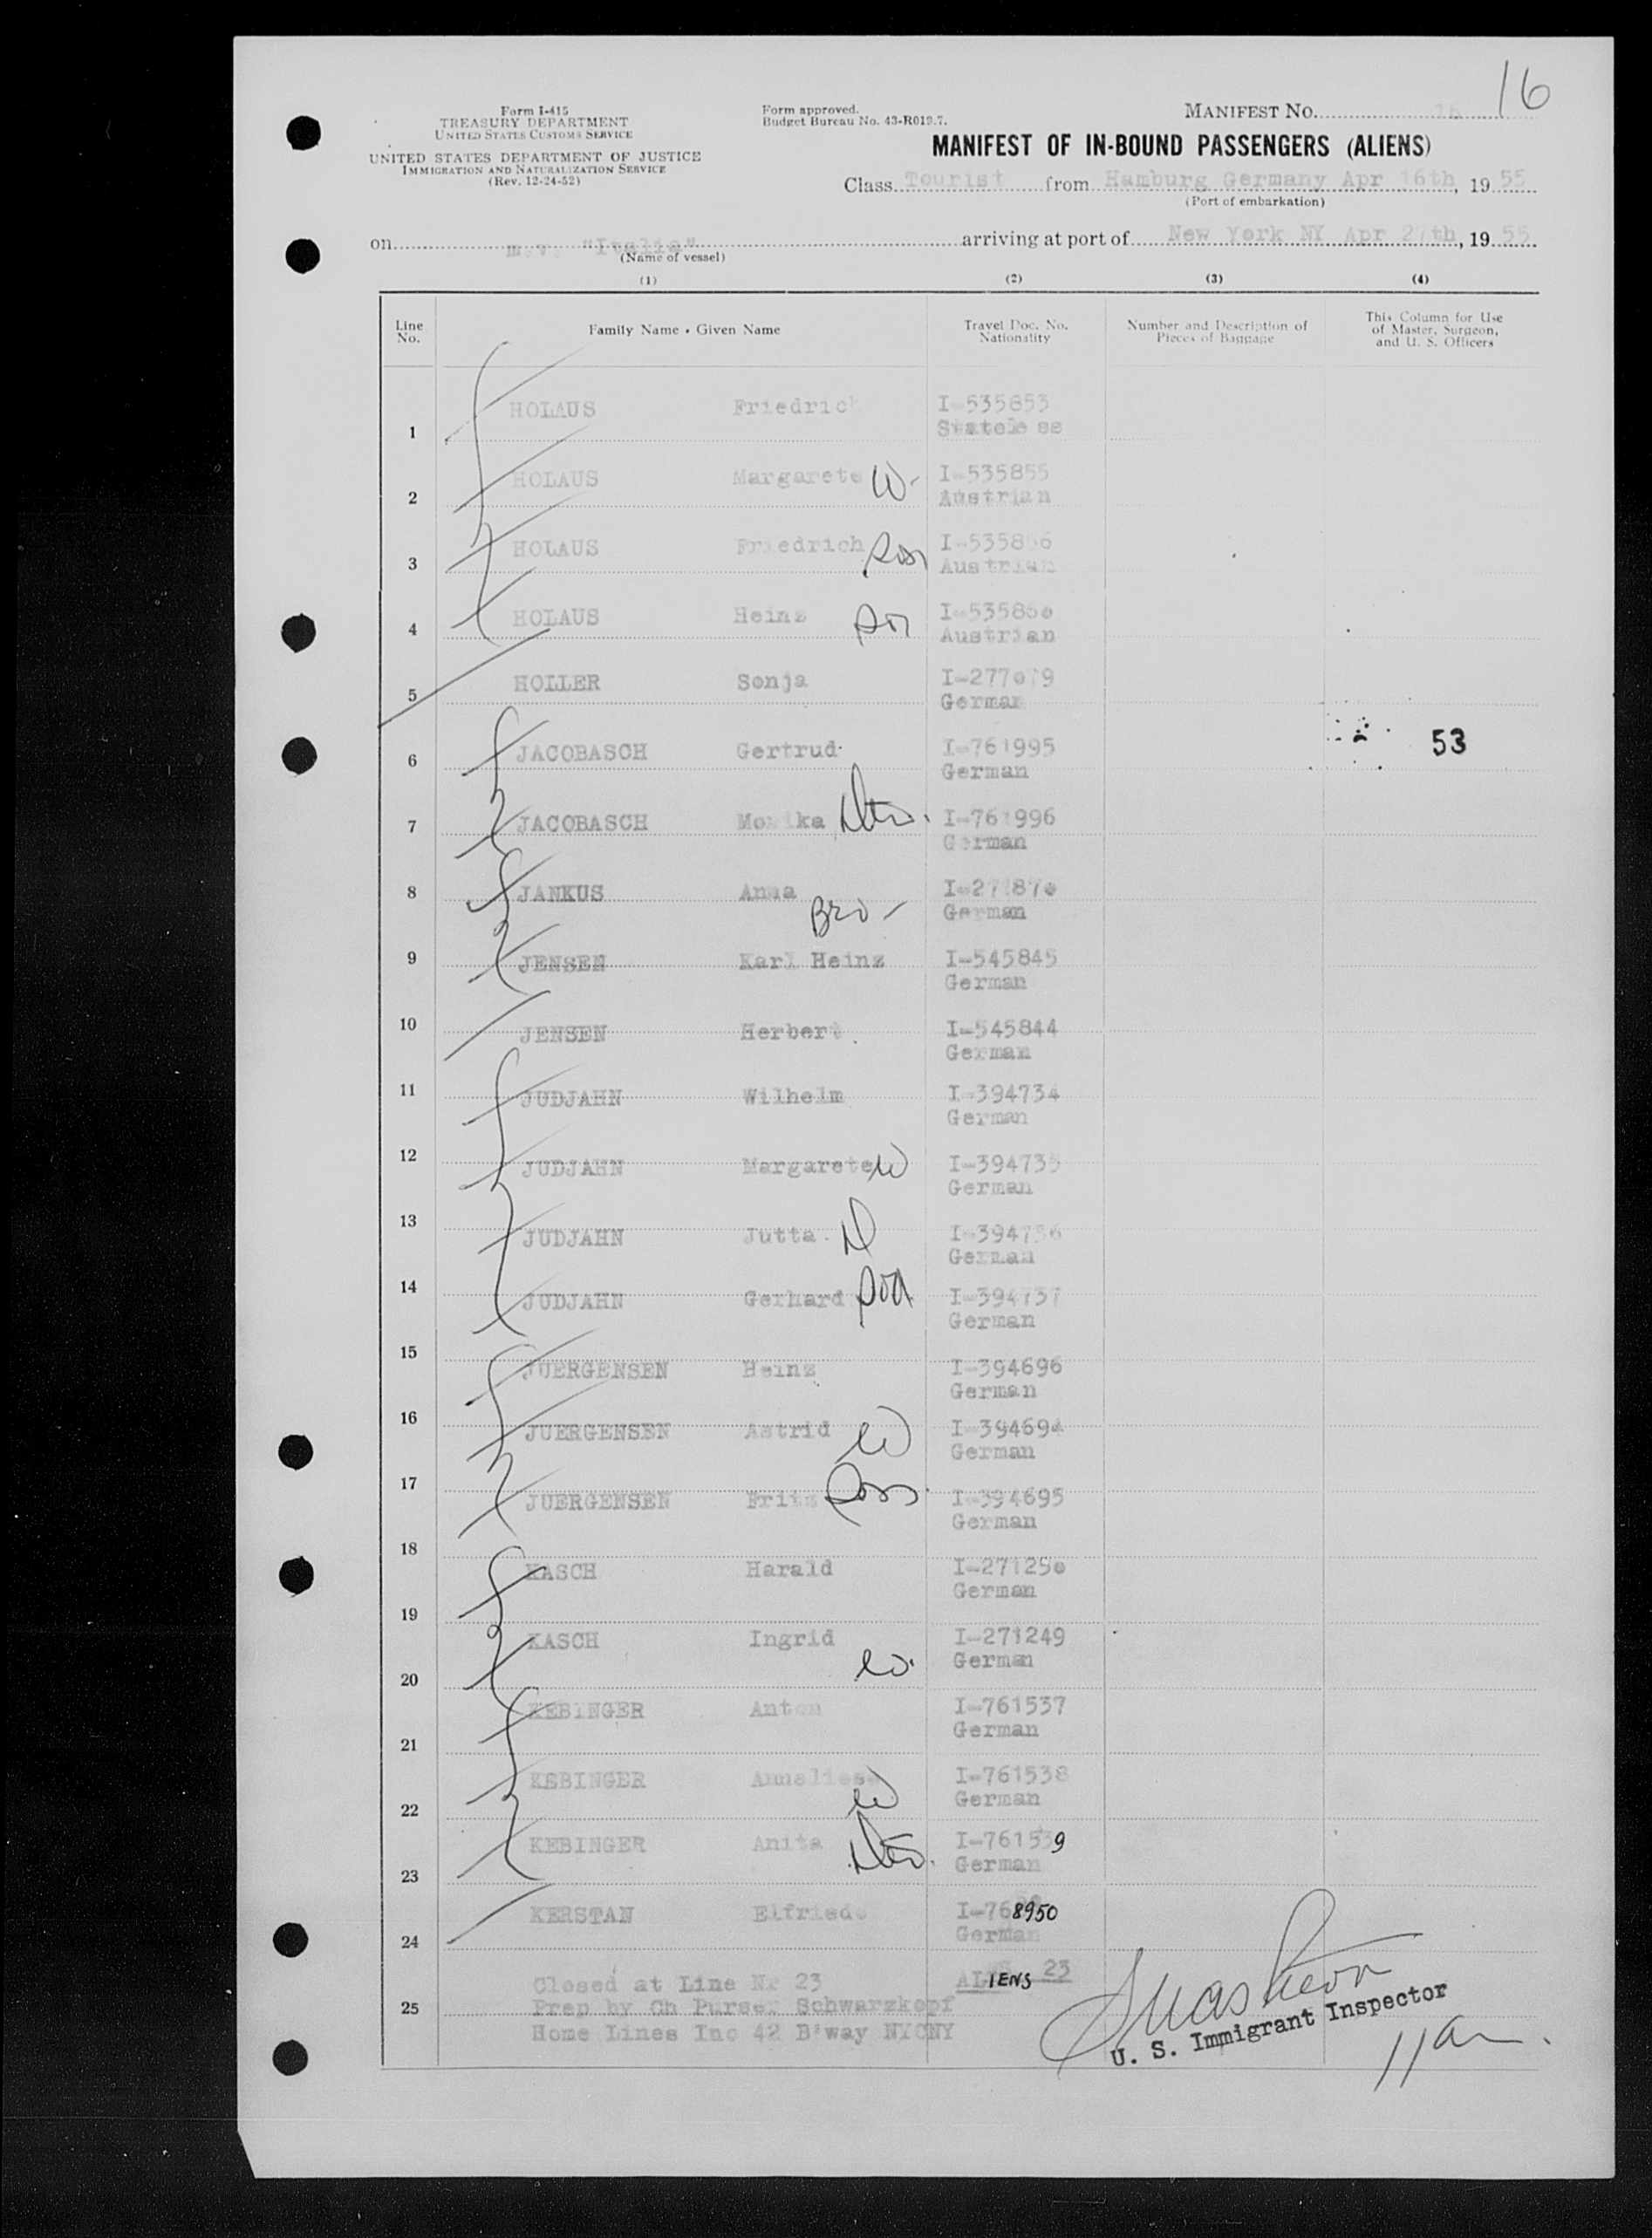 16
Form I-415
TREASURY DEPARTMENT
UNITED STATES CUSTOMS SERVICE
UNITED STATES DEPARTMENT OF JUSTICE
IMMIGRATION AND NATURALIZATION SERVICE
(Rev. 12-24-52)
Form approved.
Budget Bureau No. 43-R019.7.
MANIFEST NO. 16
MANIFEST OF IN-BOUND PASSENGERS (ALIENS)
Class Tourist from Hamburg Germany Apr 16th, 19 55
(Port of embarkation)
on m.v. "Italia" arriving at port of New York NY Apr 27th, 19 55
(Name of vessel)
(1) (2) (3) (4)
Line No. Family Name - Given Name Travel Doc. No. Nationality Number and Description of Pieces of Baggage This Column for Use of Master, Surgeon, and U. S. Officers
1 HOLAUS Friedrich I-535853
Stateless
2 HOLAUS Margarete W- I-535855
Austrian
3 HOLAUS Friedrich Son
Austrian
4 HOLAUS Heinz Son
Austrian
5 HOLLER Sonja
German
6 JACOBASCH Gertrud I-761995
German
53
7 JACOBASCH Monika Dtr. I-761996
German
8 JANKUS Anna
German
Bro-
9 JENSEN Karl Heinz I-545845
German
10 JENSEN Herbert I-545844
German
11 JUDJAHN Wilhelm I-394734
German
12 JUDJAHN Margarete W I-394735
German
13 JUDJAHN Jutta D I-394736
German
14 JUDJAHN Gerhard Son I-394737
German
15 JUERGENSEN Heinz I-394696
German
16 JUERGENSEN Astrid W I-394694
German
17 JUERGENSEN Fritz Son I-394695
German
18 KASCH Harald I-271250
German
19 KASCH Ingrid I-271249
W. German
20 KEBINGER Anton I-761537
German
21 KEBINGER Anneliese I-761538
W German
22 KEBINGER Anita Dtr. I-761539
German
23 KERSTAN Elfriede I-768950
German
24
Closed at Line Nr 23 ALIENS 23
25 Prep by Ch Purser Schwarzkopf
Home Lines Inc 42 B'way NYCNY
U. S. Immigrant Inspector